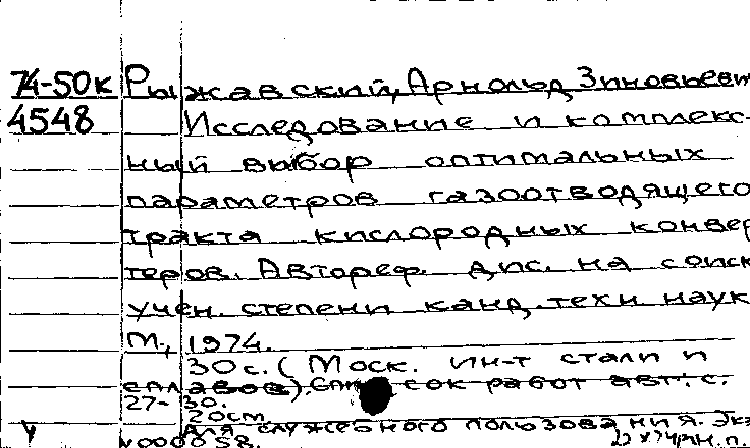 74-50к Рыжавский, Арнольд Зиновьевич
4548 Исследование и комплекс-
ный выбор оптимальных
параметров газоотводящего
тракта кислородных конвер
теров. Автореф. дис. на соиск
учен. степени канд. техн наук
М., 1974.
30с. (Моск. ин-т стали и
сплавов). Список работ авт.: с.
27-30.
20см
Для служебного пользования. Экз
у №000058.